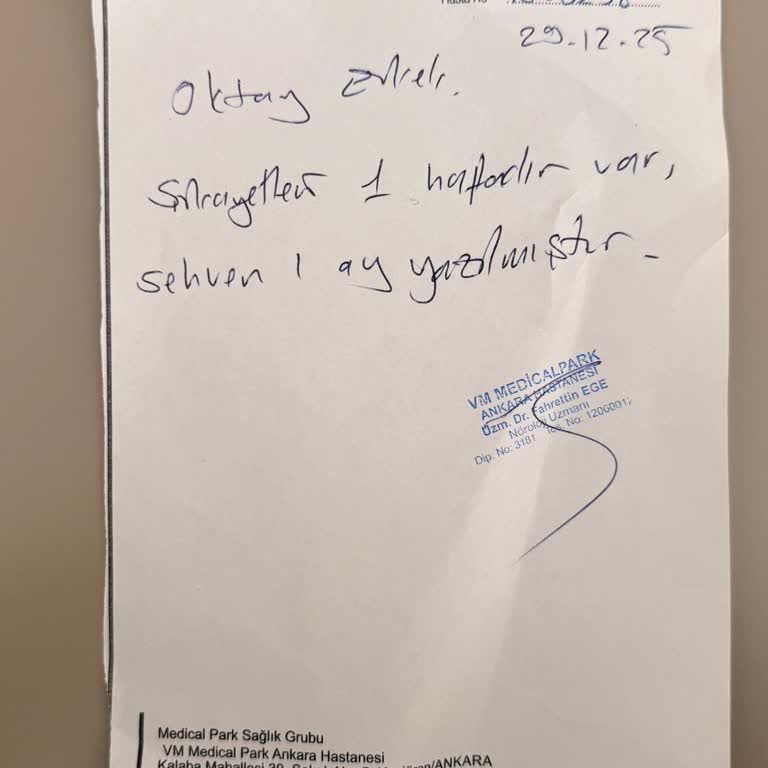 29.12.25
Oktay
Şikayetleri 1 haftadır var,
sehven 1 ay yazılmıştır.
VM MEDİCALPARK
ANKARA HASTANESİ
Uzm. Dr. Fahrettin EGE
Nöroloji Uzmanı
Dip. No: 3181 Tes. No:
Medical Park Sağlık Grubu
VM Medical Park Ankara Hastanesi
Kalaba Mahallesi /ANKARA